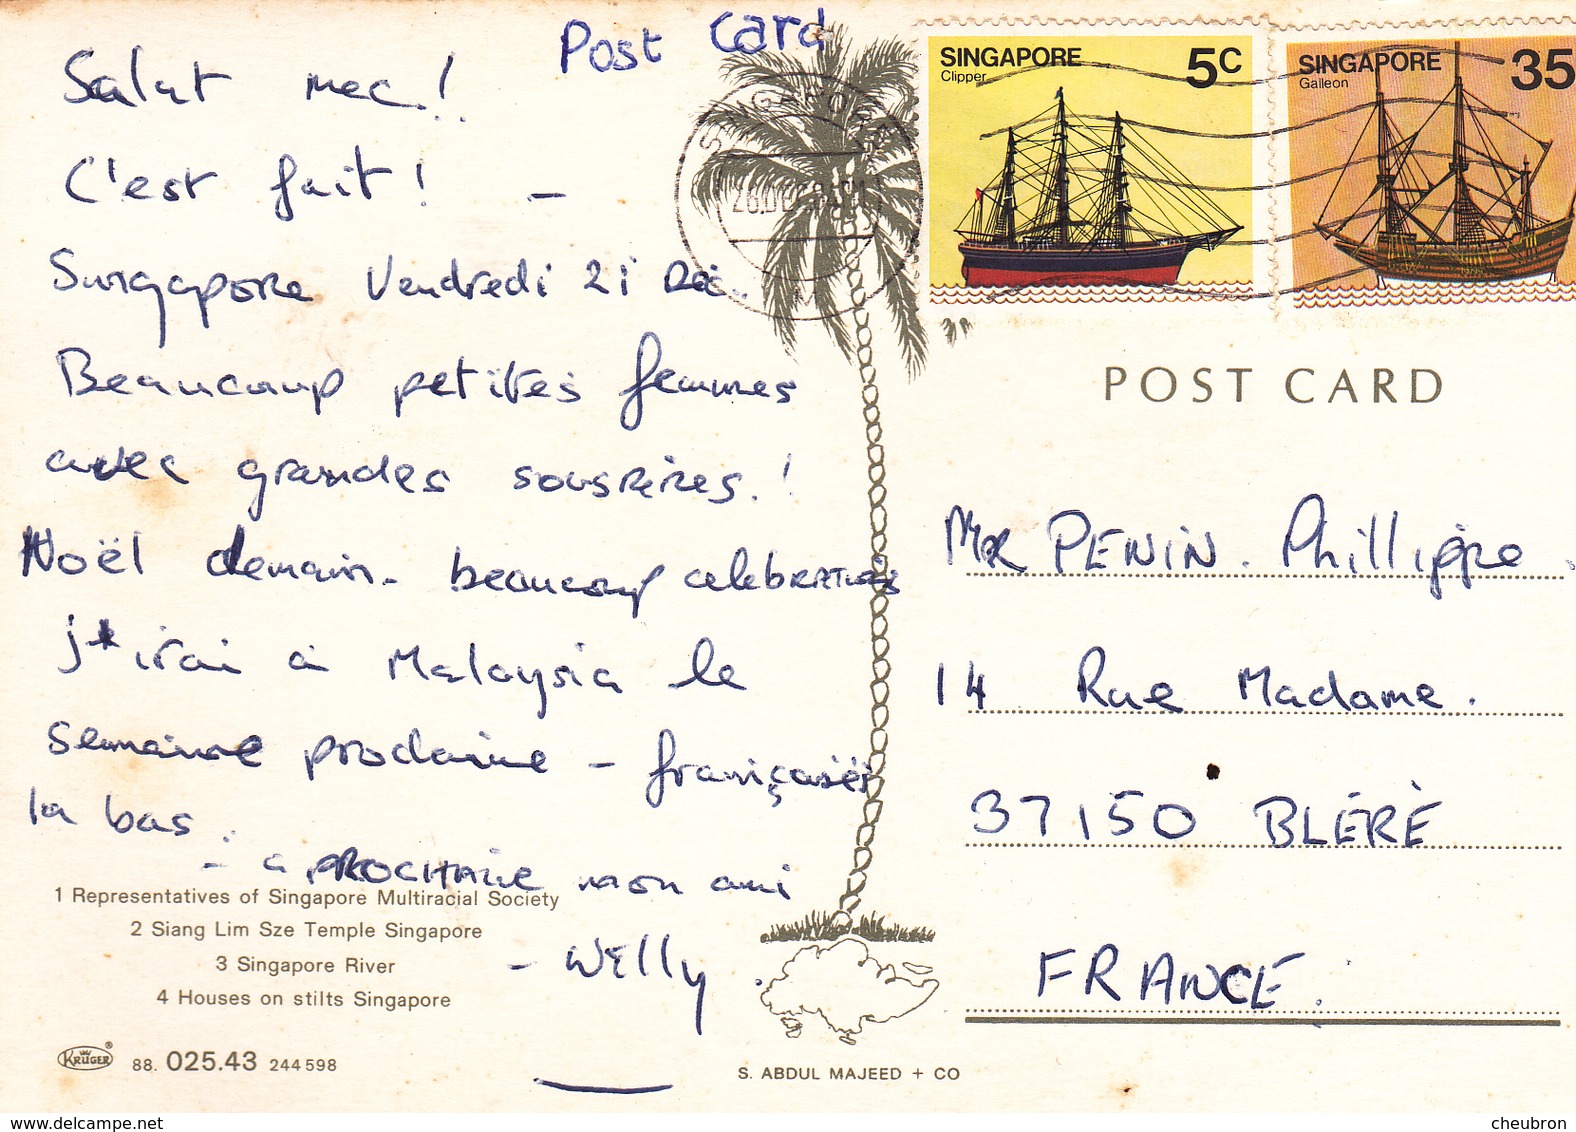 Post Card
Salut mec!
C'est fait! -
Singapore Vendredi 21 Déc.
Beaucoup petites femmes
avec grandes sousrires.!
Noël demain - beaucoup celebrations
j'irai a Malaysia le
semaine prochaine - françaises
la bas.
- a PROCHAINE mon ami
- Willy.
1 Representatives of Singapore Multiracial Society
2 Siang Lim Sze Temple Singapore
3 Singapore River
4 Houses on stilts Singapore
KRÜGER ® 88. 025.43 244598
S. ABDUL MAJEED + CO
SINGAPORE 5C
Clipper
SINGAPORE 35
Galleon
SINGAPORE
POST CARD
MR PENIN. Phillippe.
14 Rue Madame.
37150 BLÉRÈ
FRANCE.
www.delcampe.net
cheubron